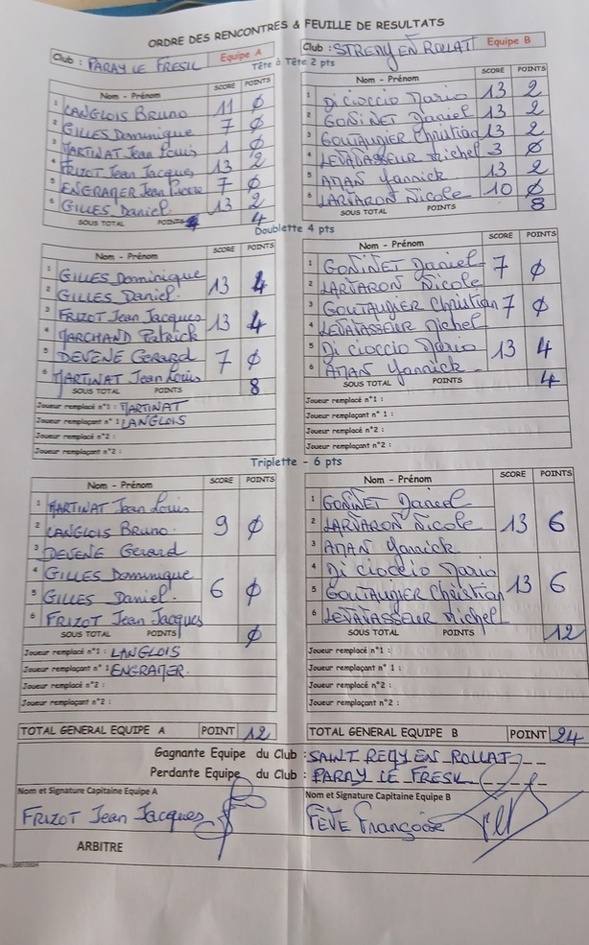 ORDRE DES RENCONTRES & FEUILLE DE RESULTATS
Club : PARAY LE FRESIL Equipe A
Club : ST REMY EN ROLLAT Equipe B
Tête à Tête 2 pts
Nom - Prénom SCORE POINTS
1 LANGLOIS Bruno 11 Ø
2 GILLES Dominique 7 Ø
3 MARTINAT Jean Louis 1 Ø
4 FRIZOT Jean Jacques 13 2
5 ENGRAMER Jean Pierre 7 Ø
6 GILLES Daniel. 13 2
SOUS TOTAL POINTS 4
Nom - Prénom SCORE POINTS
1 Di cioccio Mario 13 2
2 GONINET Daniel 13 2
3 GOUTAUDIER Christian 13 2
4 LEVAVASSEUR Michel 3 Ø
5 AMAN Yannick 13 2
6 LARVARON Nicole 10 Ø
SOUS TOTAL POINTS 8
Doublette 4 pts
Nom - Prénom SCORE POINTS
1 GILLES Dominique
2 GILLES Daniel. 13 4
3 FRIZOT Jean Jacques
4 MARCHAND Patrick 13 4
5 DEVENE Gerard
6 MARTINAT Jean Louis 7 Ø
SOUS TOTAL POINTS 8
Joueur remplacé n°1 : MARTINAT
Joueur remplaçant n°1 : LANGLOIS
Joueur remplacé n°2 :
Joueur remplaçant n°2 :
Nom - Prénom SCORE POINTS
1 GONINET Daniel
2 LARVARON Nicole 7 Ø
3 GOUTAUDIER Christian
4 LEVAVASSEUR Michel 7 Ø
5 Di cioccio Mario
6 AMAN Yannick 13 4
SOUS TOTAL POINTS 4
Joueur remplacé n°1 :
Joueur remplaçant n° 1 :
Joueur remplacé n°2 :
Joueur remplaçant n°2 :
Triplette - 6 pts
Nom - Prénom SCORE POINTS
1 MARTINAT Jean Louis
2 LANGLOIS Bruno. 9 Ø
3 DEVENE Gerard
4 GILLES Dominique
5 GILLES Daniel. 6 Ø
6 FRIZOT Jean Jacques
SOUS TOTAL POINTS Ø
Joueur remplacé n°1 : LANGLOIS
Joueur remplaçant n° 1 : ENGRAMER.
Joueur remplacé n°2 :
Joueur remplaçant n°2 :
Nom - Prénom SCORE POINTS
1 GONINET Daniel
2 LARVARON Nicole 13 6
3 AMAN Yannick
4 Di cioccio Mario
5 GOUTAUDIER Christian 13 6
6 LEVAVASSEUR Michel
SOUS TOTAL POINTS 12
Joueur remplacé n°1 :
Joueur remplaçant n° 1 :
Joueur remplacé n°2 :
Joueur remplaçant n°2 :
TOTAL GENERAL EQUIPE A POINT 12
TOTAL GENERAL EQUIPE B POINT 24
Gagnante Equipe du Club : SAINT REMY EN ROLLAT
Perdante Equipe du Club : PARAY LE FRESIL
Nom et Signature Capitaine Equipe A
FRIZOT Jean Jacques
Nom et Signature Capitaine Equipe B
FEVE Françoise
ARBITRE